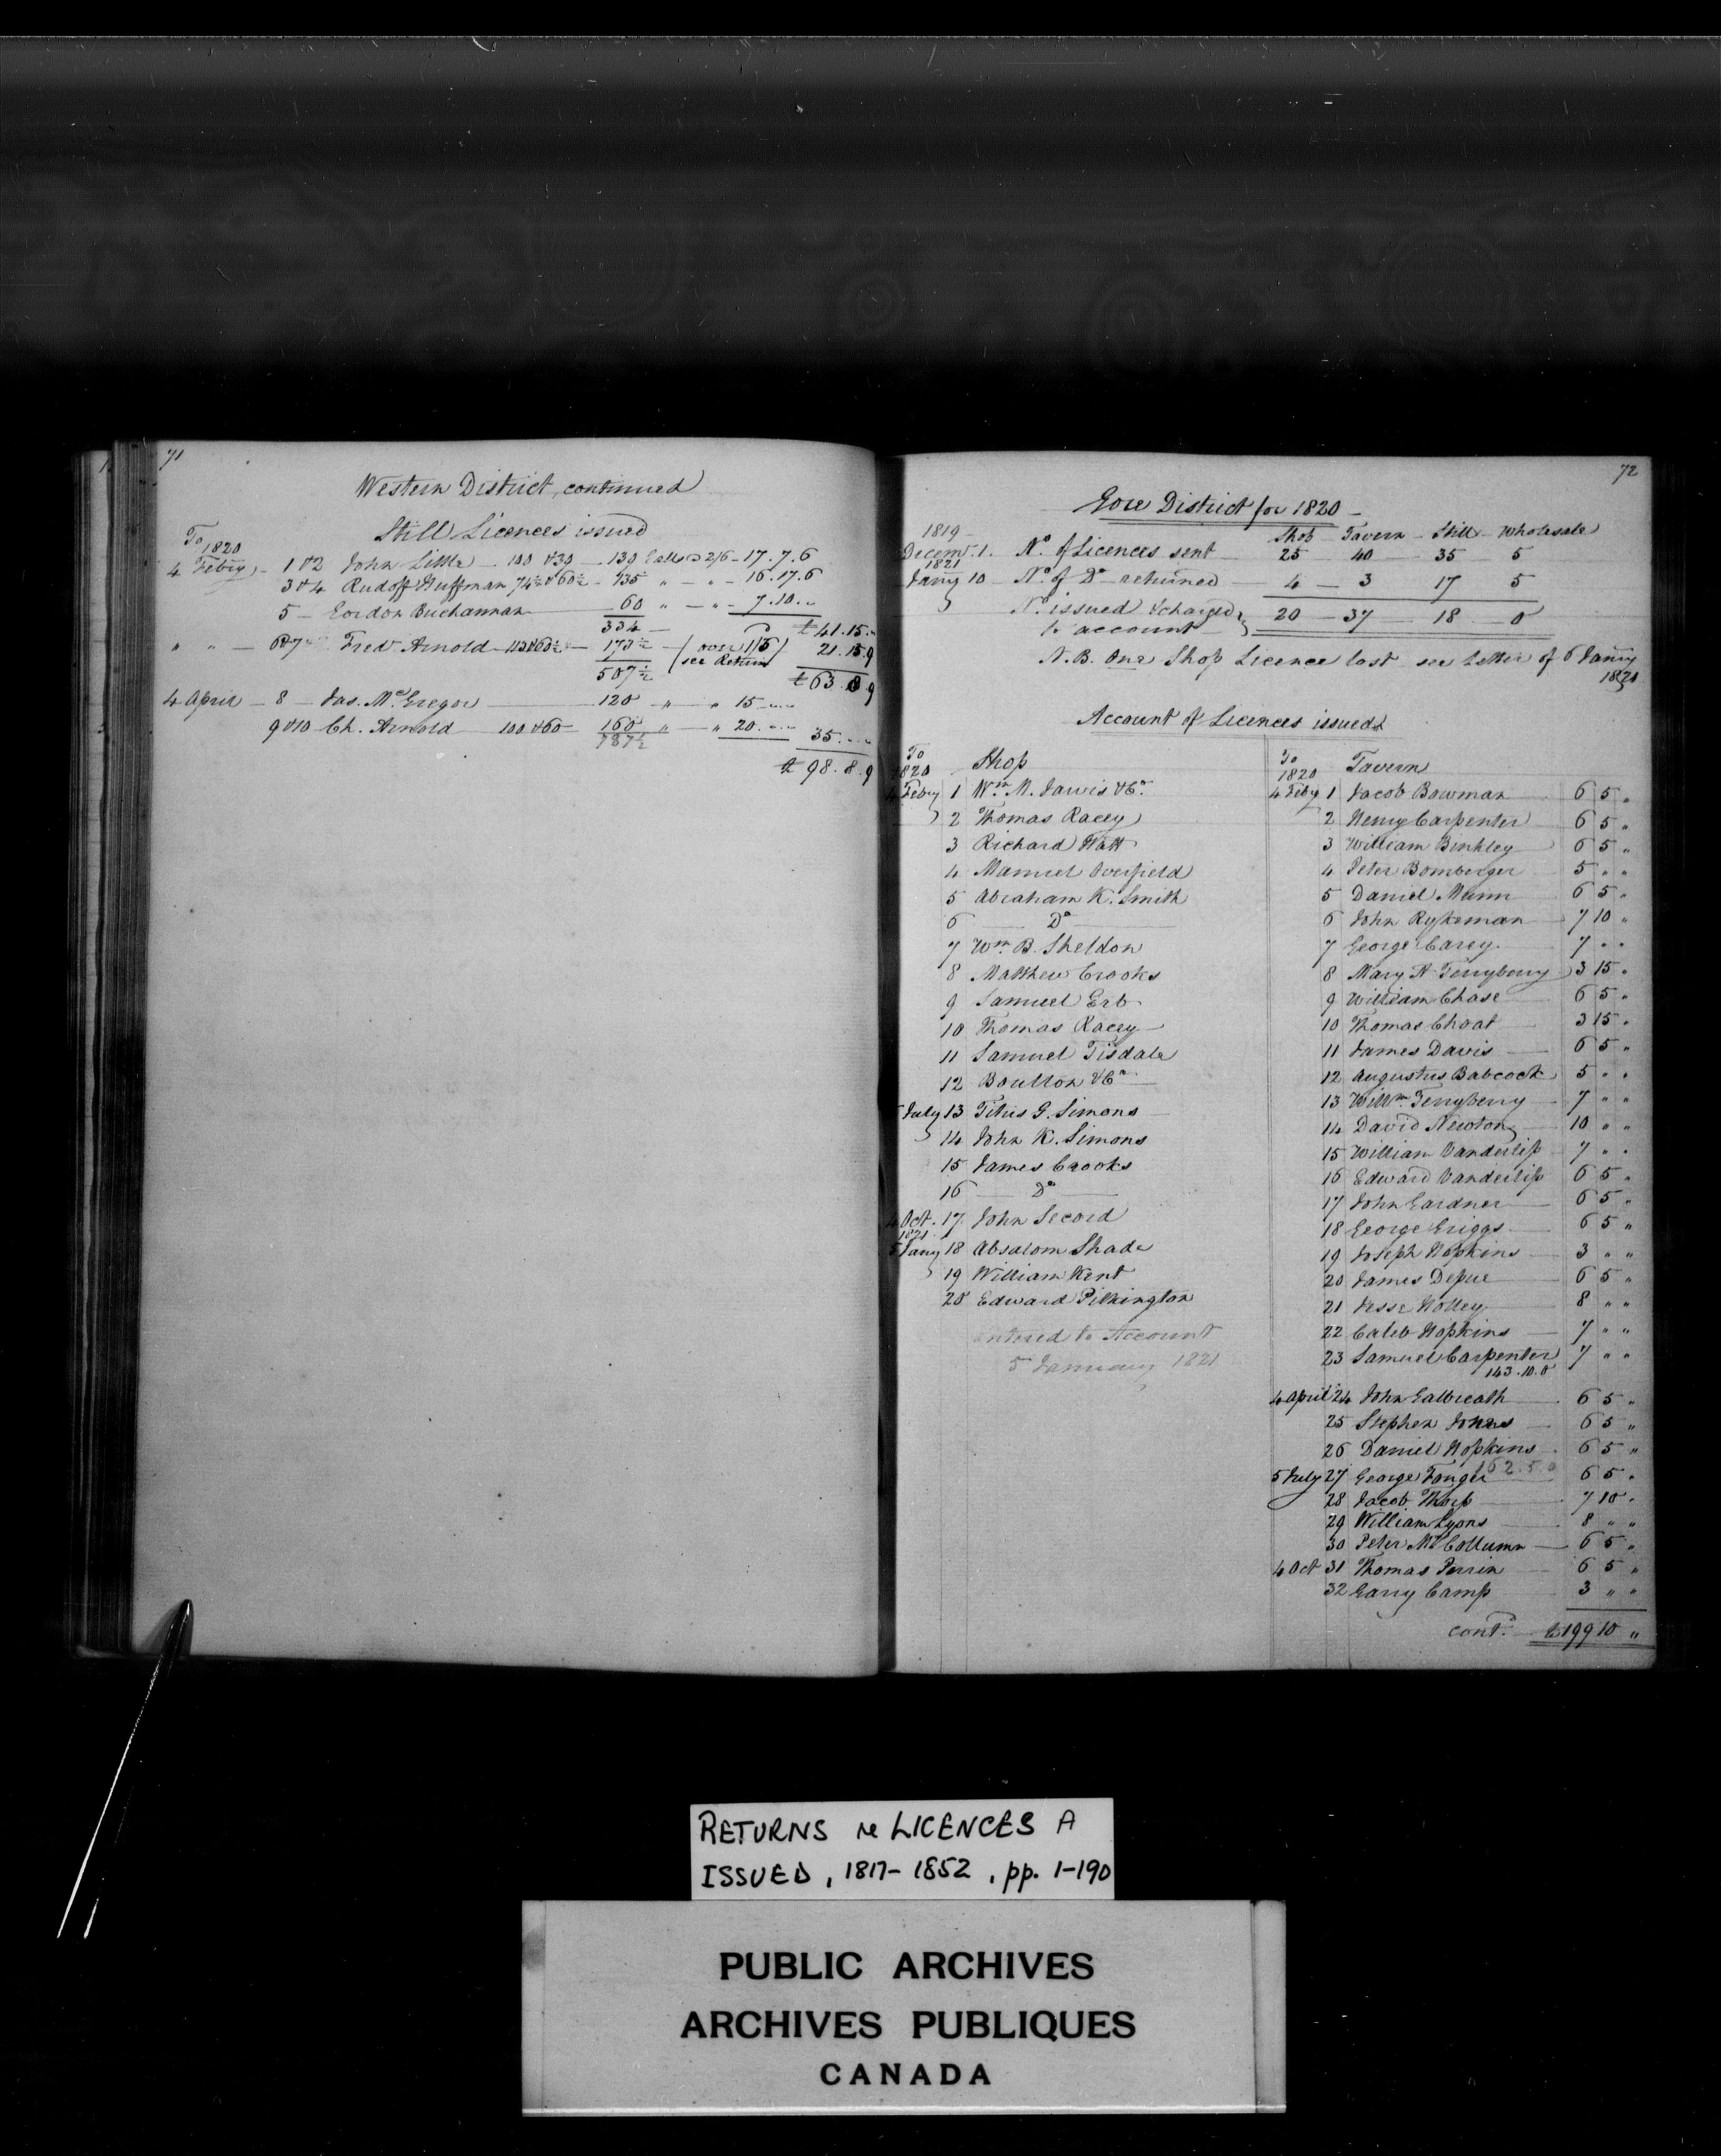 71
Western District, continued
Still Licences issued
To 1820
4 Feby - 1 & 2 John Little - 100 & 30 - 130 Galls @ 2/6 - 17.7.6
3 & 4 Rudoff Huffman 74½ & 60½ - 135 " - " - 16.17.6
5 - Gordon Buchannan 60 " - " - 7.10..
334 - £41.15.
" " - 6 & 7 Fred Arnold - 113 & 60½ - 173½ - (over 1/3) 21.15.9
see Return
507½ £63.8.9
4 April - 8 - Jas. McGregor 120 " - " 15 -..
9 & 10 Ch. Arnold 100 & 60 - 160 " - " 20.... 35....
787½
£98.8.9
72
Gore District for 1820 -
1819 - Shop - Tavern - Still - Wholesale
Decemr. 1. No. of Licences sent 25 40 35 5
1821
Jany 10 - No. of Do. returned 4 - 3 17 5
No. issued & charged to account 20 - 37 - 18 - 0
N.B. One Shop Licence lost see Letter of 6 Jany 1821
Account of Licences issued
To 1820 Shop
4 Feby 1 Wm. M. Jarvis & Co.
2 Thomas Racey
3 Richard Hatt
4 Manuel Overfield
5 Abraham K. Smith
6 Do
7 Wm. B. Sheldon
8 Matthew Crooks
9 Samuel Erb
10 Thomas Racey
11 Samuel Tisdale
12 Boulton & Co.
5 July 13 Titus G. Simons
14 John K. Simons
15 James Crooks
16 Do
4 Oct. 17 John Secord
1821
5 Jany 18 Absalom Shade
19 William Kent
20 Edward Pilkington
entered to Account
5 January 1821
To 1820 Tavern
4 Feby 1 Jacob Bowman 6 5 "
2 Henry Carpenter 6 5 "
3 William Binkley 6 5 "
4 Peter Bomberger 5 " "
5 Daniel Munn 6 5 "
6 John Rykeman 7 10 "
7 George Carey 7 " "
8 Mary A Terryberry 3 15 "
9 William Chase 6 5 "
10 Thomas Choat 3 15 "
11 James Davis 6 5 "
12 Augustus Babcock 5 " "
13 Willm. Terryberry 7 " "
14 David Newton 10 " "
15 William Vanderlip 7 " "
16 Edward Vanderlip 6 5 "
17 John Gardner 6 5 "
18 George Griggs 6 5 "
19 Joseph Hopkins 3 " "
20 James Depue 6 5 "
21 Jesse Holley 8 " "
22 Caleb Hopkins 7 " "
23 Samuel Carpenter 7 " "
143.10.0
4 April 24 John Galbreath 6 5 "
25 Stephen Jones 6 5 "
26 Daniel Hopkins 6 5 "
162.5.0
5 July 27 George Fonger 6 5 "
28 Jacob Thorp 7 10 "
29 William Lyons 8 " "
30 Peter McCollumn 6 5 "
4 Oct 31 Thomas Perrin 6 5 "
32 Garry Camp 3 " "
contd. £199 10 "
RETURNS re LICENCES A
ISSUED, 1817-1852, pp. 1-190
PUBLIC ARCHIVES
ARCHIVES PUBLIQUES
CANADA